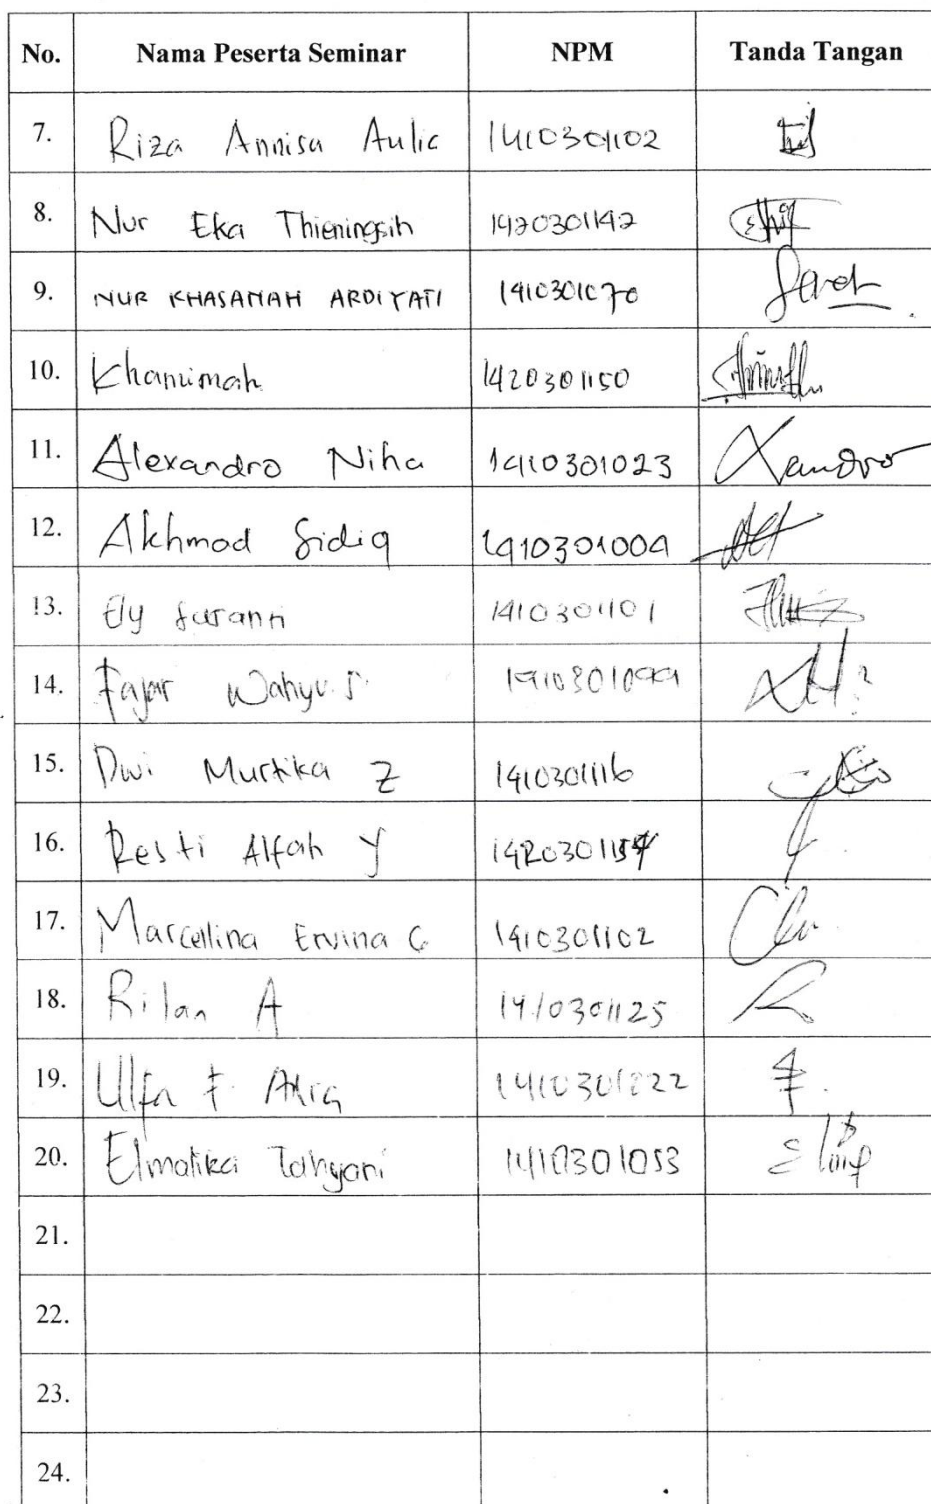 No. Nama Peserta Seminar NPM Tanda Tangan
7. Riza Annisa Aulia 1410301102
8. Nur Eka Thieningsih 1420301142
9. NUR KHASANAH ARDIYATI 1410301070
10. Khanimah 1420301150
11. Alexandro Niha 1410301023 Xandro
12. Akhmad Sidiq 1410301009
13. Ely 1410301101
14. Fajar Wahyu S. 1410301099
15. Dwi Murtika Z 1410301116
16. Resti Alfah Y
17. Marcellina Ervina C 1410301102
18. Rilan A 1410301125
19. Ulfa F.
20. Elmatika 1410301053
21.
22.
23.
24.